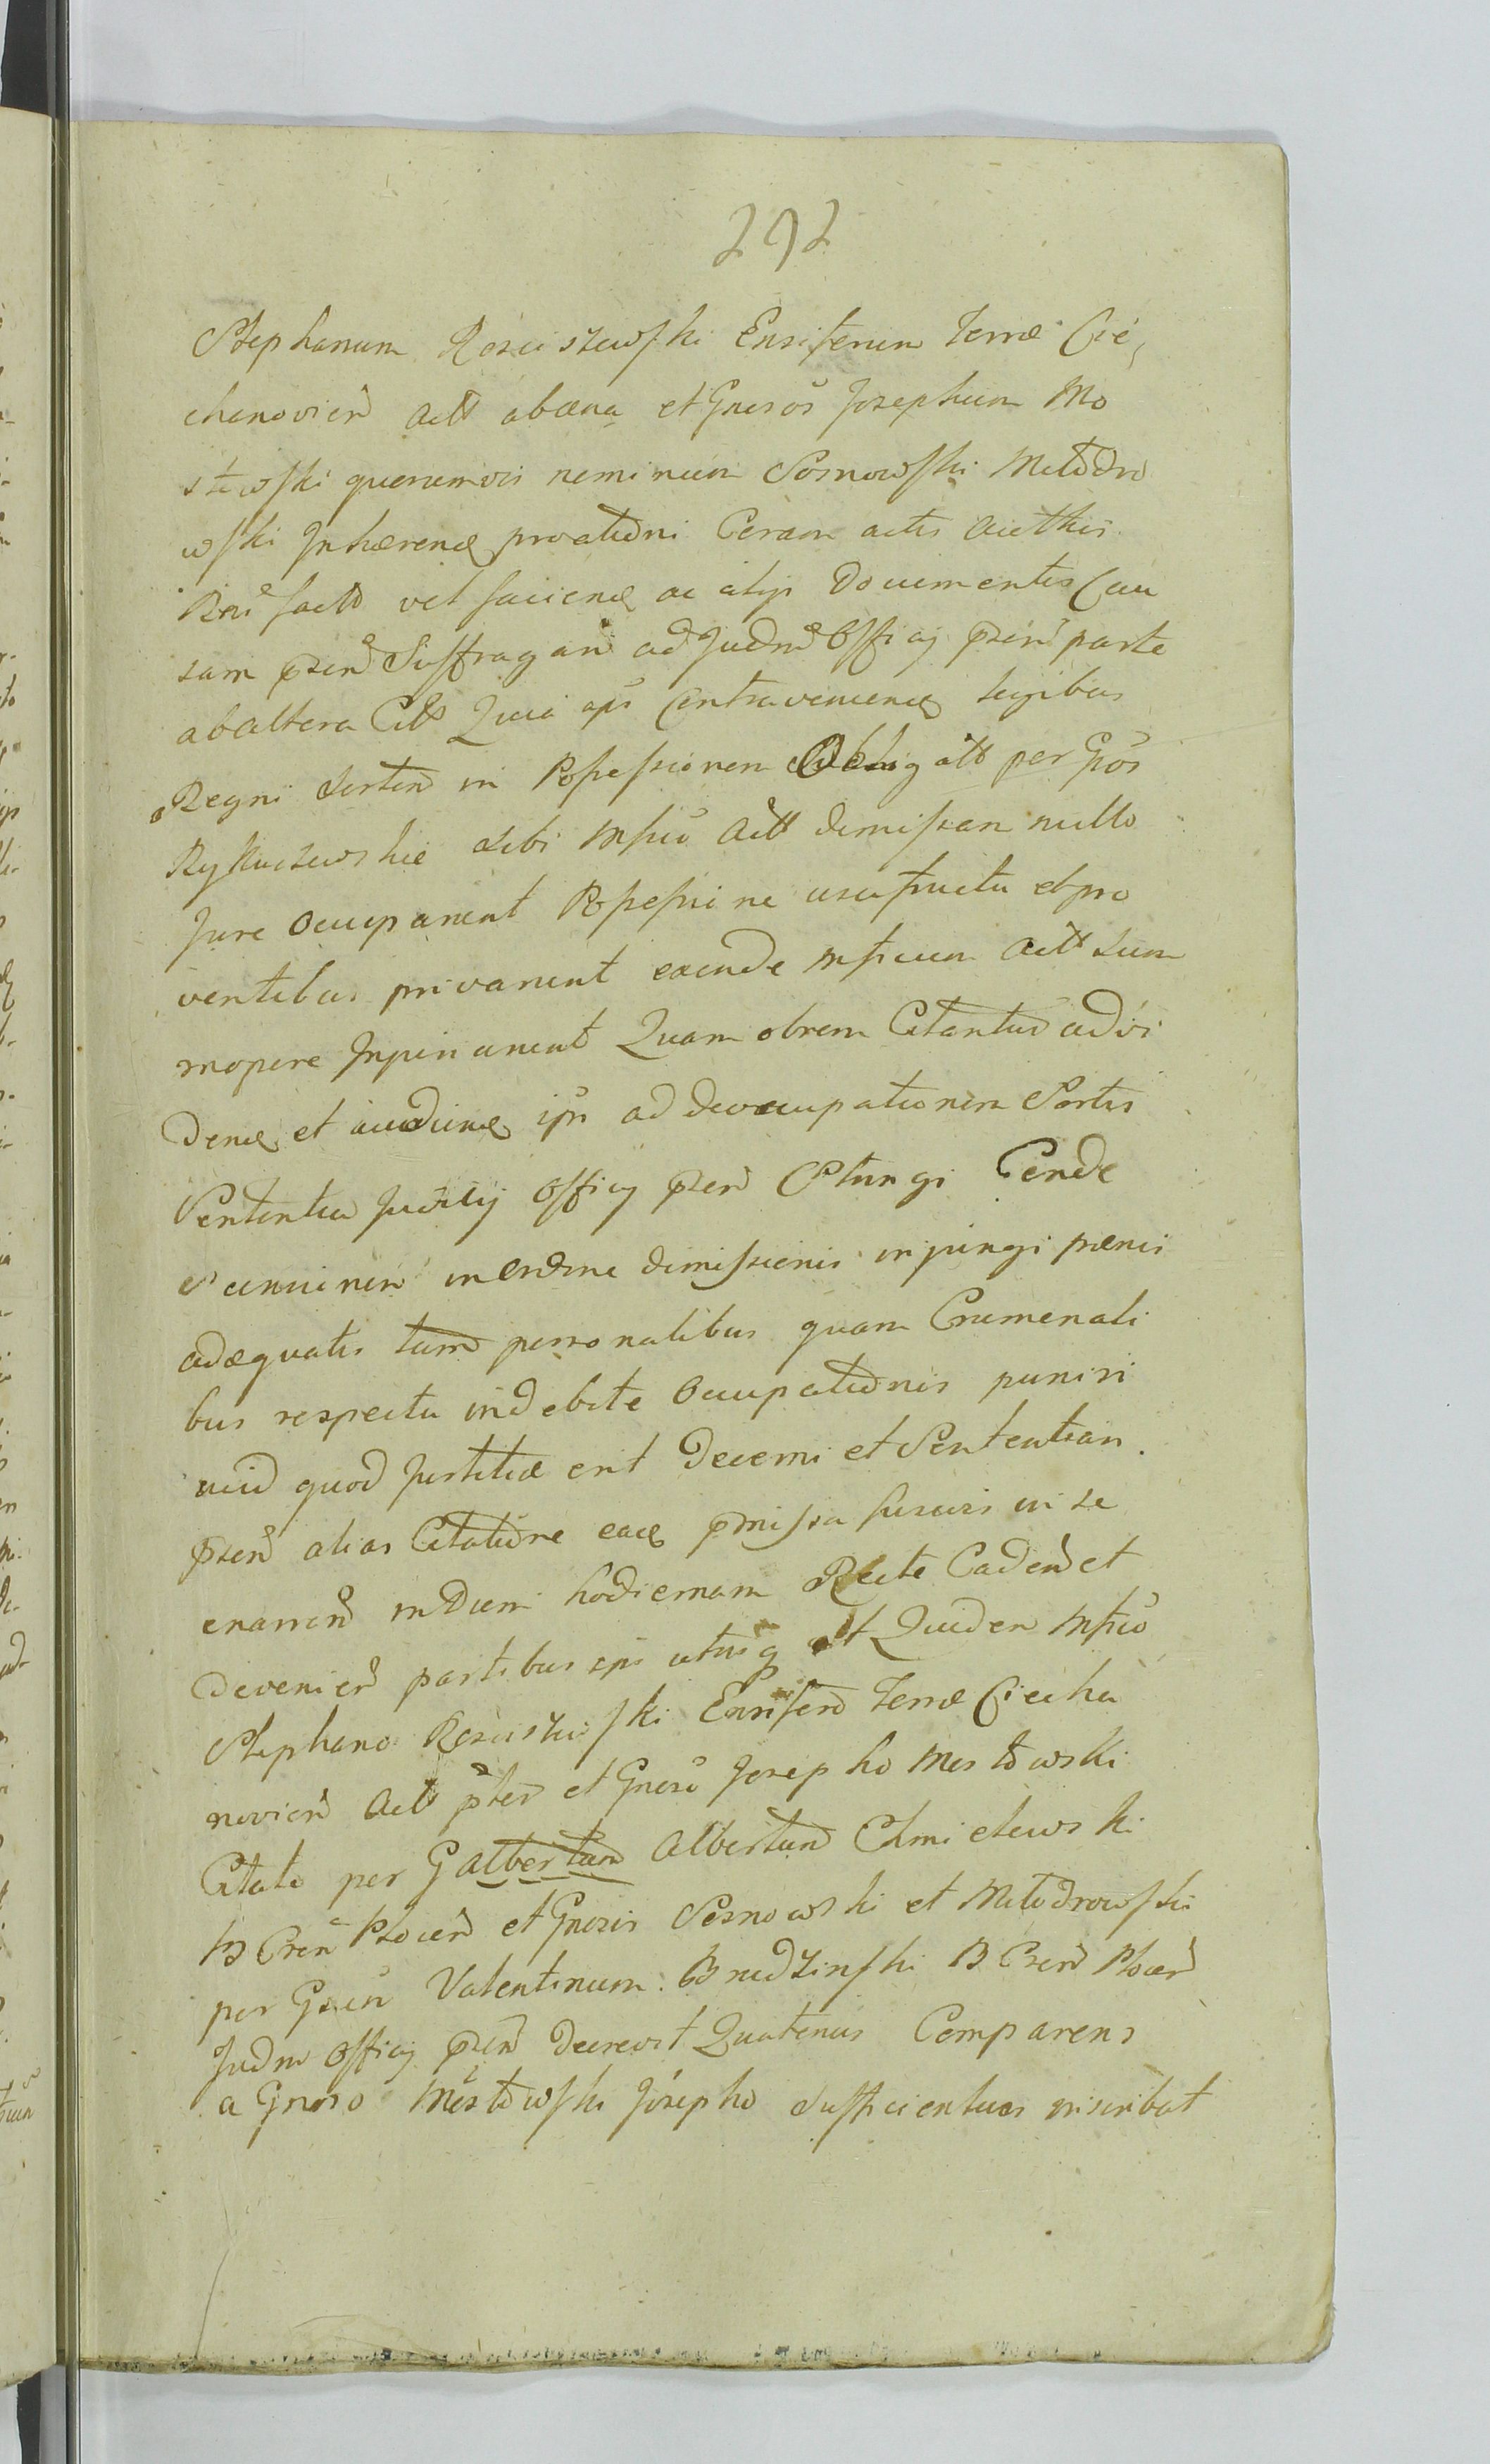 292
Stephanum Rościszewski Ensiferum Terræ Cie,
chanovień Actt abæna et Gnesos Josephum Mo
stowski quorumvis nominum Sosnowski Młodro
wski Inhæreng protaõni Coram actis Authis
facto vel faciend ac aliis Documentis Cau
sam præsen Suffragañ ad Judm Officij præsen parte
ab altera Citt Quia ipsi Contraveniend legibus
Regni Sortem in Possessionem Obligatt per Gsos
sibi Mfico Actt dimissam nullo
Jure occuparunt Possessione usufructu et pro
ventibus privarunt exinde Mficum Actt sum
mopere Quam obrem Citantur ad vi
dend et audiend ipsi ad deoccupationem Sortis
Sententia Judicij Officij præsen Astringi Conde
in ordine dimissionis injungi pænis
adæquatis tam personalibus quam Crumenali
bus respectu indebitæ occupationis puniri
id quod Justitiæ erit Decerni et Sententiari.
præsen alias Citatione eaq præmissa fusius in se
enarreñ in Diem hodiernam Recte Cadeñ et
Devenieñ partibus ipsis utrisq et Quidem Mfico
Stephano Rościszewski Ensifero Terræ Ciecha
novień Actt et Gnoso Josepho Mostowski
Citato per G Albertum Albertum Chmielewski
B Cren Płoceñ et Gnosis Sosnowski et Młodrowski
per Gsum Valentinum Brudzinski B Creñ Płoceñ
Judm Officij præsen Decrevit Quatenus Comparens
a Gnoso Mostowski Josepho sufficientius inscribat